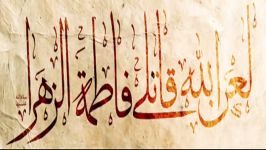 لعن الله قاتلي فاطمة الزهرا